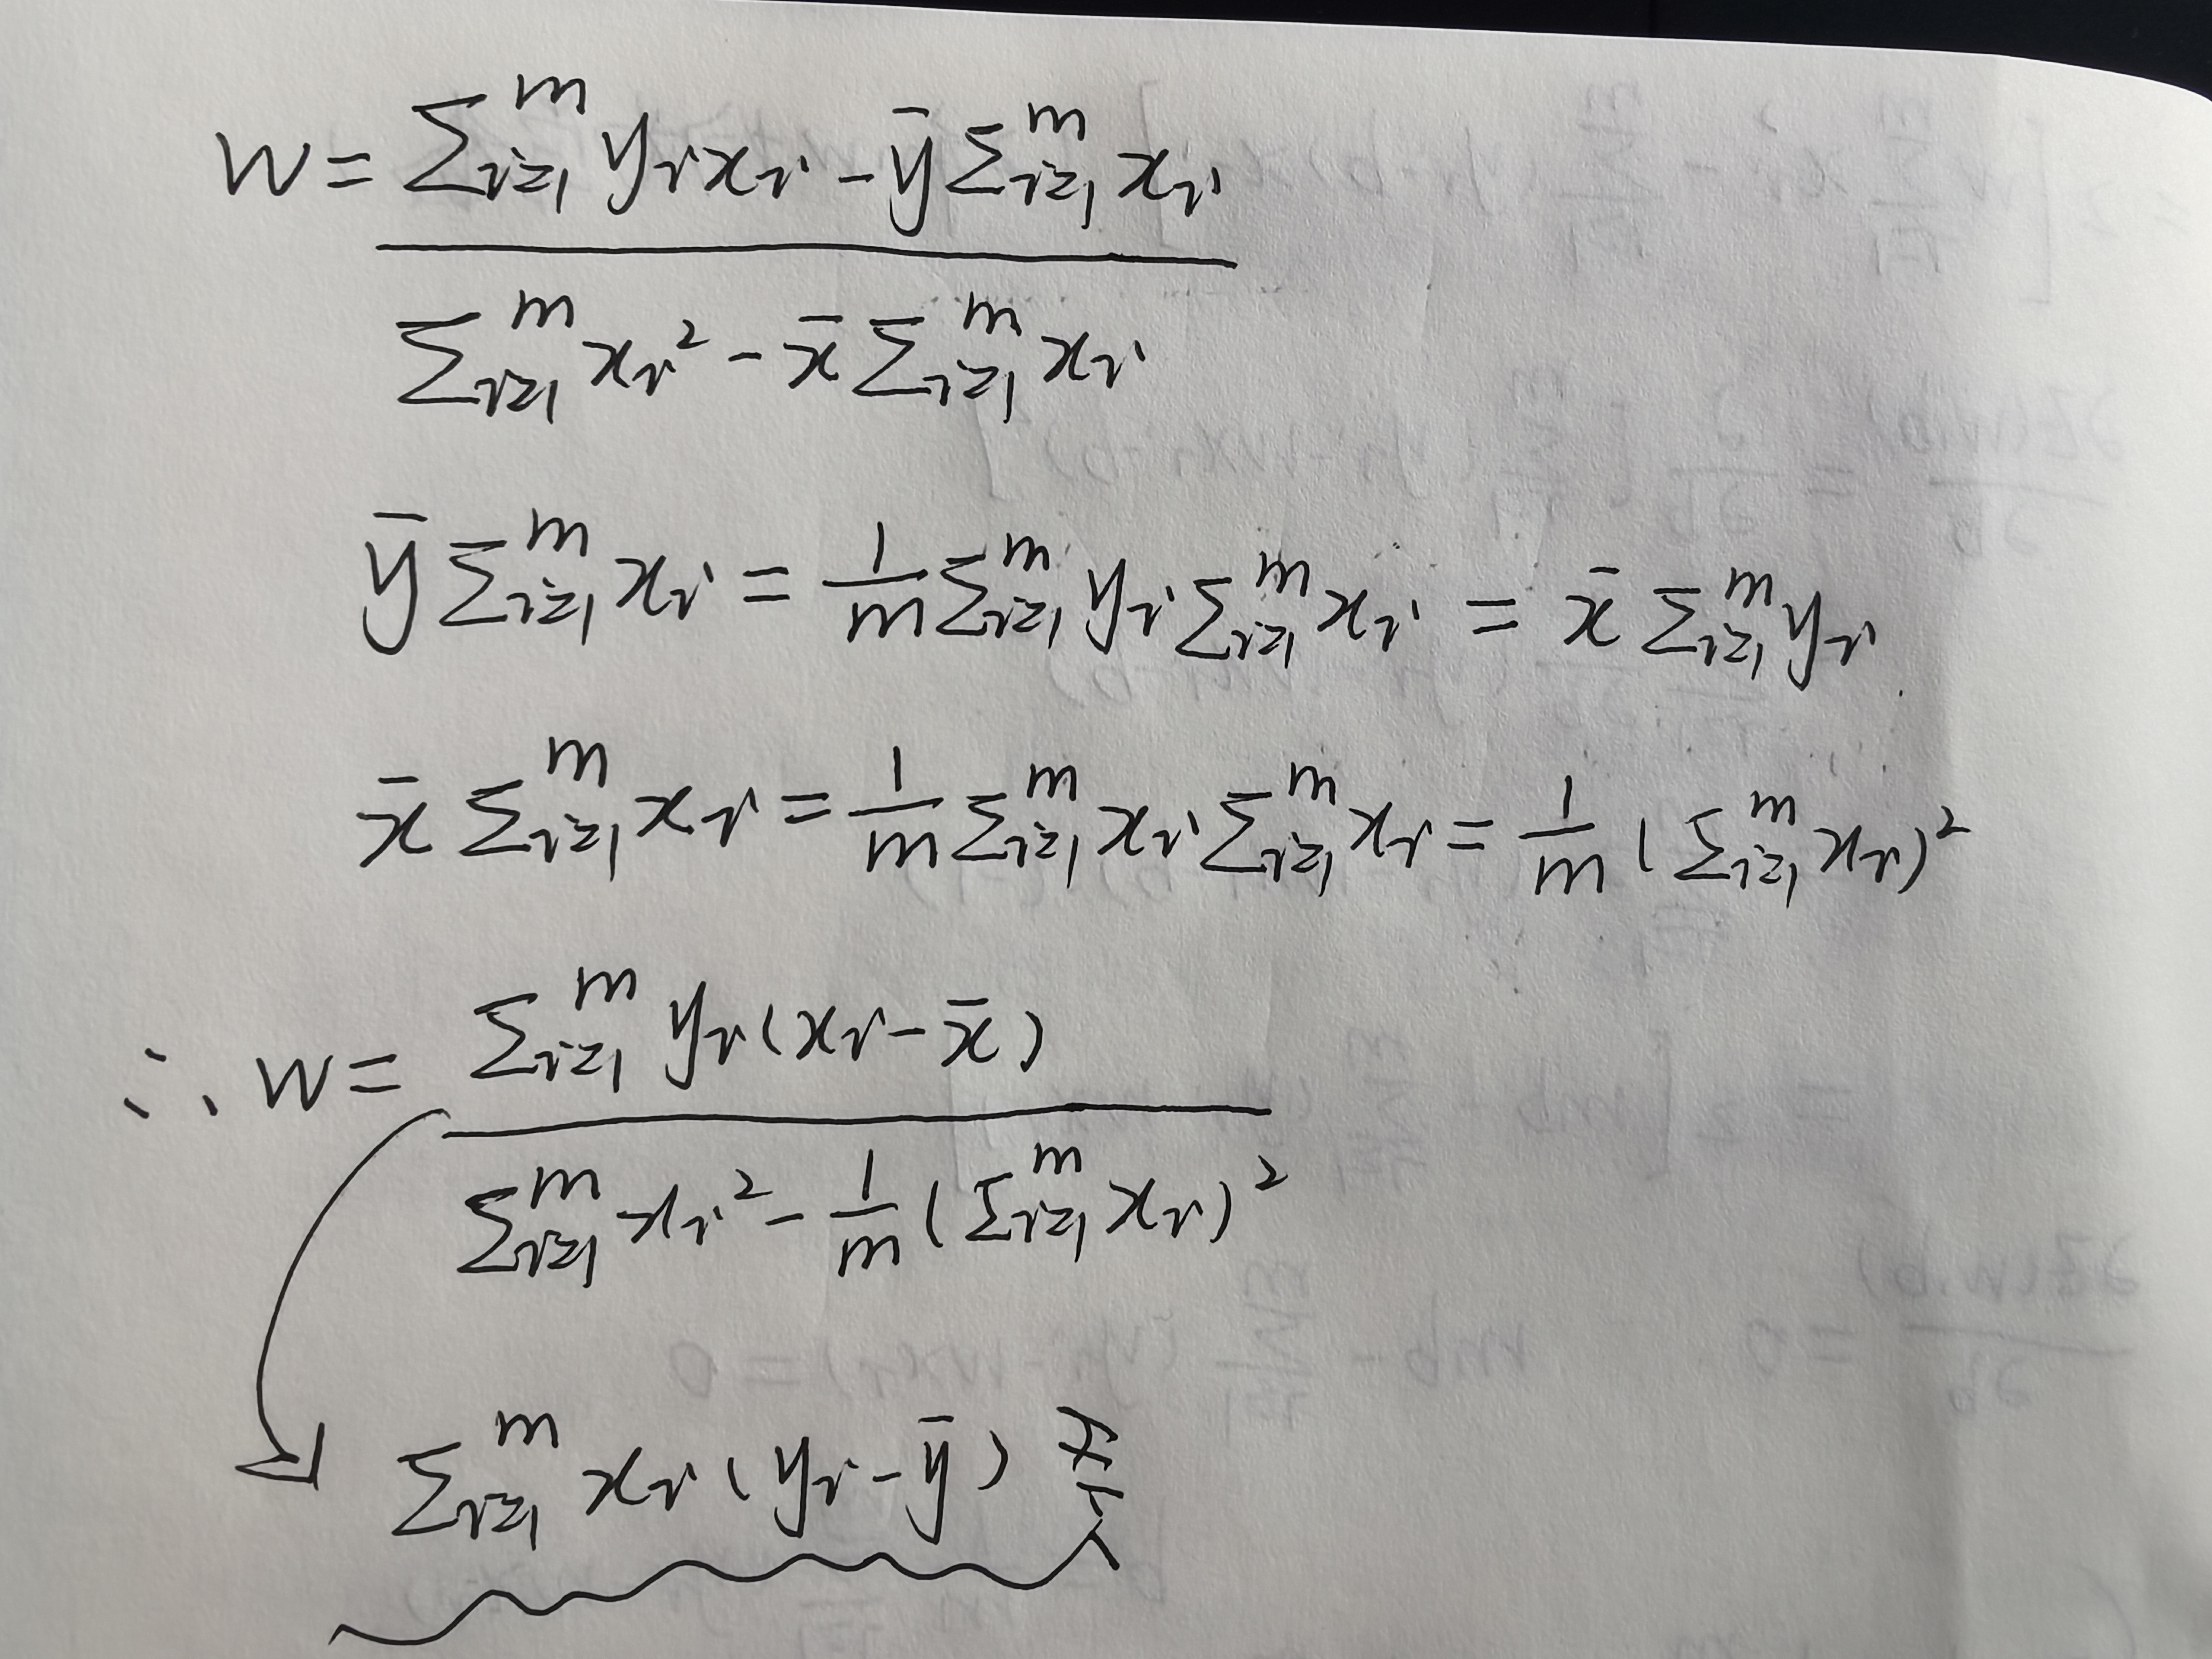 w = (∑_{i=1}^m y_i x_i - ȳ ∑_{i=1}^m x_i) / (∑_{i=1}^m x_i² - x̄ ∑_{i=1}^m x_i)
ȳ ∑_{i=1}^m x_i = 1/m ∑_{i=1}^m y_i ∑_{i=1}^m x_i = x̄ ∑_{i=1}^m y_i
x̄ ∑_{i=1}^m x_i = 1/m ∑_{i=1}^m x_i ∑_{i=1}^m x_i = 1/m (∑_{i=1}^m x_i)²
∴ w = (∑_{i=1}^m y_i (x_i - x̄)) / (∑_{i=1}^m x_i² - 1/m (∑_{i=1}^m x_i)²)
∑_{i=1}^m x_i (y_i - ȳ)